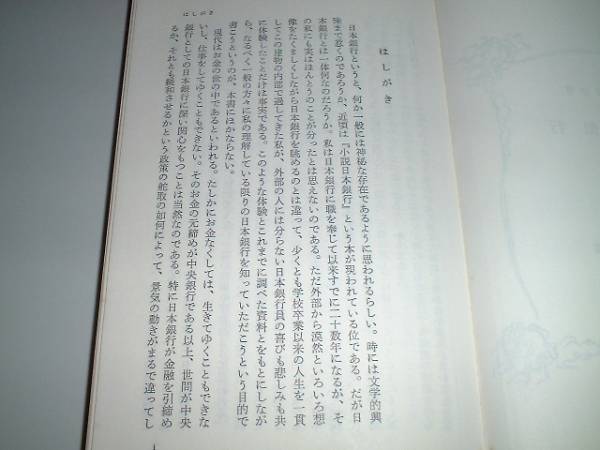 はしがき
日本銀行というと、何か一般には神秘な存在であるように思われるらしい。時には文学的興
味まで惹くのであろうか、近頃は『小説日本銀行』という本が現われている位である。だが日
本銀行とは一体何なのだろうか。私は日本銀行に職を奉じて以来すでに二十数年になるが、そ
の私にも実はほんとうのことが分ったとは思えないのである。ただ外部から漠然といろいろ想
像をたくましくしながら日本銀行を眺めるのとは違って、少くとも学校卒業以来の人生を一貫
してこの建物の内部で過してきた私が、外部の人には分らない日本銀行員の喜びも悲しみも共
に体験したことだけは事実である。このような体験とこれまでに調べた資料とをもとにしなが
ら、なるべく一般の方々に私の理解している限りの日本銀行を知っていただこうという目的で
書こうというのが、本書にほかならない。
現代はお金の世の中であるといわれる。たしかにお金なくしては、生きてゆくこともできな
いし、仕事をしてゆくこともできない。そのお金の元締めが中央銀行である以上、世間が中央
銀行としての日本銀行に深い関心をもつことは当然なのである。特に日本銀行が金融を引締め
るか、それとも緩和させるかという政策の舵取の如何によって、景気の動きがまるで違ってし
はしがき